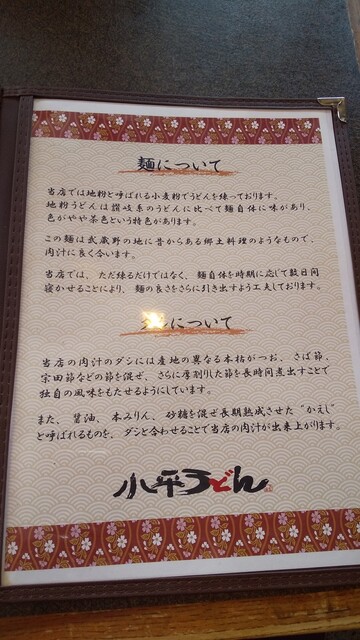 麺について
当店では地粉と呼ばれる小麦粉でうどんを練っております。
地粉うどんは讃岐系のうどんに比べて麺自体に味があり、
色がやや茶色という特色があります。
この麺は武蔵野の地に昔からある郷土料理のようなもので、
肉汁に良く合います。
当店では、ただ練るだけではなく、麺自体を時期に応じて数日間
寝かせることにより、麺の良さをさらに引き出すよう工夫しております。
について
当店の肉汁のダシには産地の異なる本枯がつお、さば節、
宗田節などの節を混ぜ、さらに厚削りした節を長時間煮出すことで
独自の風味をもたせるようにしています。
また、醤油、本みりん、砂糖を混ぜ長期熟成させた“かえし”
と呼ばれるものを、ダシと合わせることで当店の肉汁が出来上がります。
小平うどん